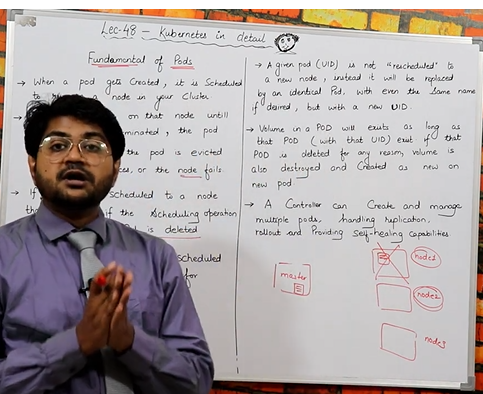 Lec-48 - Kubernetes in detail
Fundamental of Pods
→ When a pod gets Created, it is Scheduled
to a node in your Cluster
on that node untill
minated, the pod
the pod is evicted
ces, or the node fails
→ If scheduled to a node
if the Scheduling operation
is deleted
scheduled
for
→ A given pod (UID) is not "rescheduled" to
a new node, instead it will be replaced
by an identical Pod, with even the Same name
if desired, but with a new UID.
→ Volume in a POD will exists as long as
that POD (with that UID) exist if that
POD is deleted for any reason, volume is
also destroyed and Created as new on
new pod
→ A Controller can Create and manage
multiple pods, handling replication,
rollout and Providing Self-healing capabilities
master
node1
node2
node3